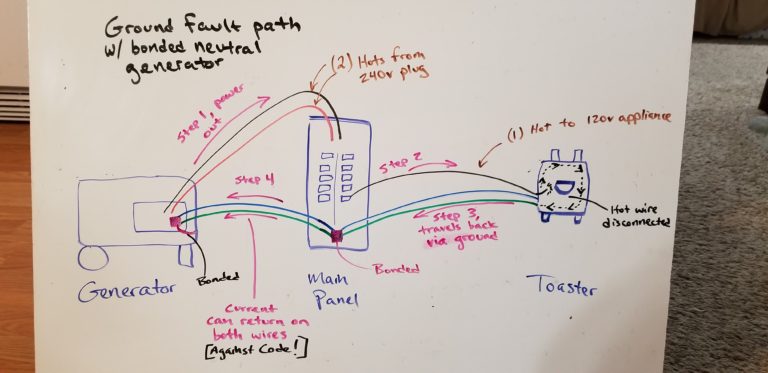 Ground fault path
w/ bonded neutral
generator
(2) Hots from
240v plug
Step 1, power
out
(1) Hot to 120v applience
Step 2
Step 4
Step 3,
travels back
via ground
Hot wire
disconnected
Bonded
Bonded
Generator
Main
Panel
Toaster
Current
can return on
both wires
[Against Code!]